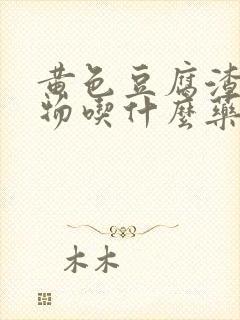 黄色豆腐渣
物喫什麼藥
木木